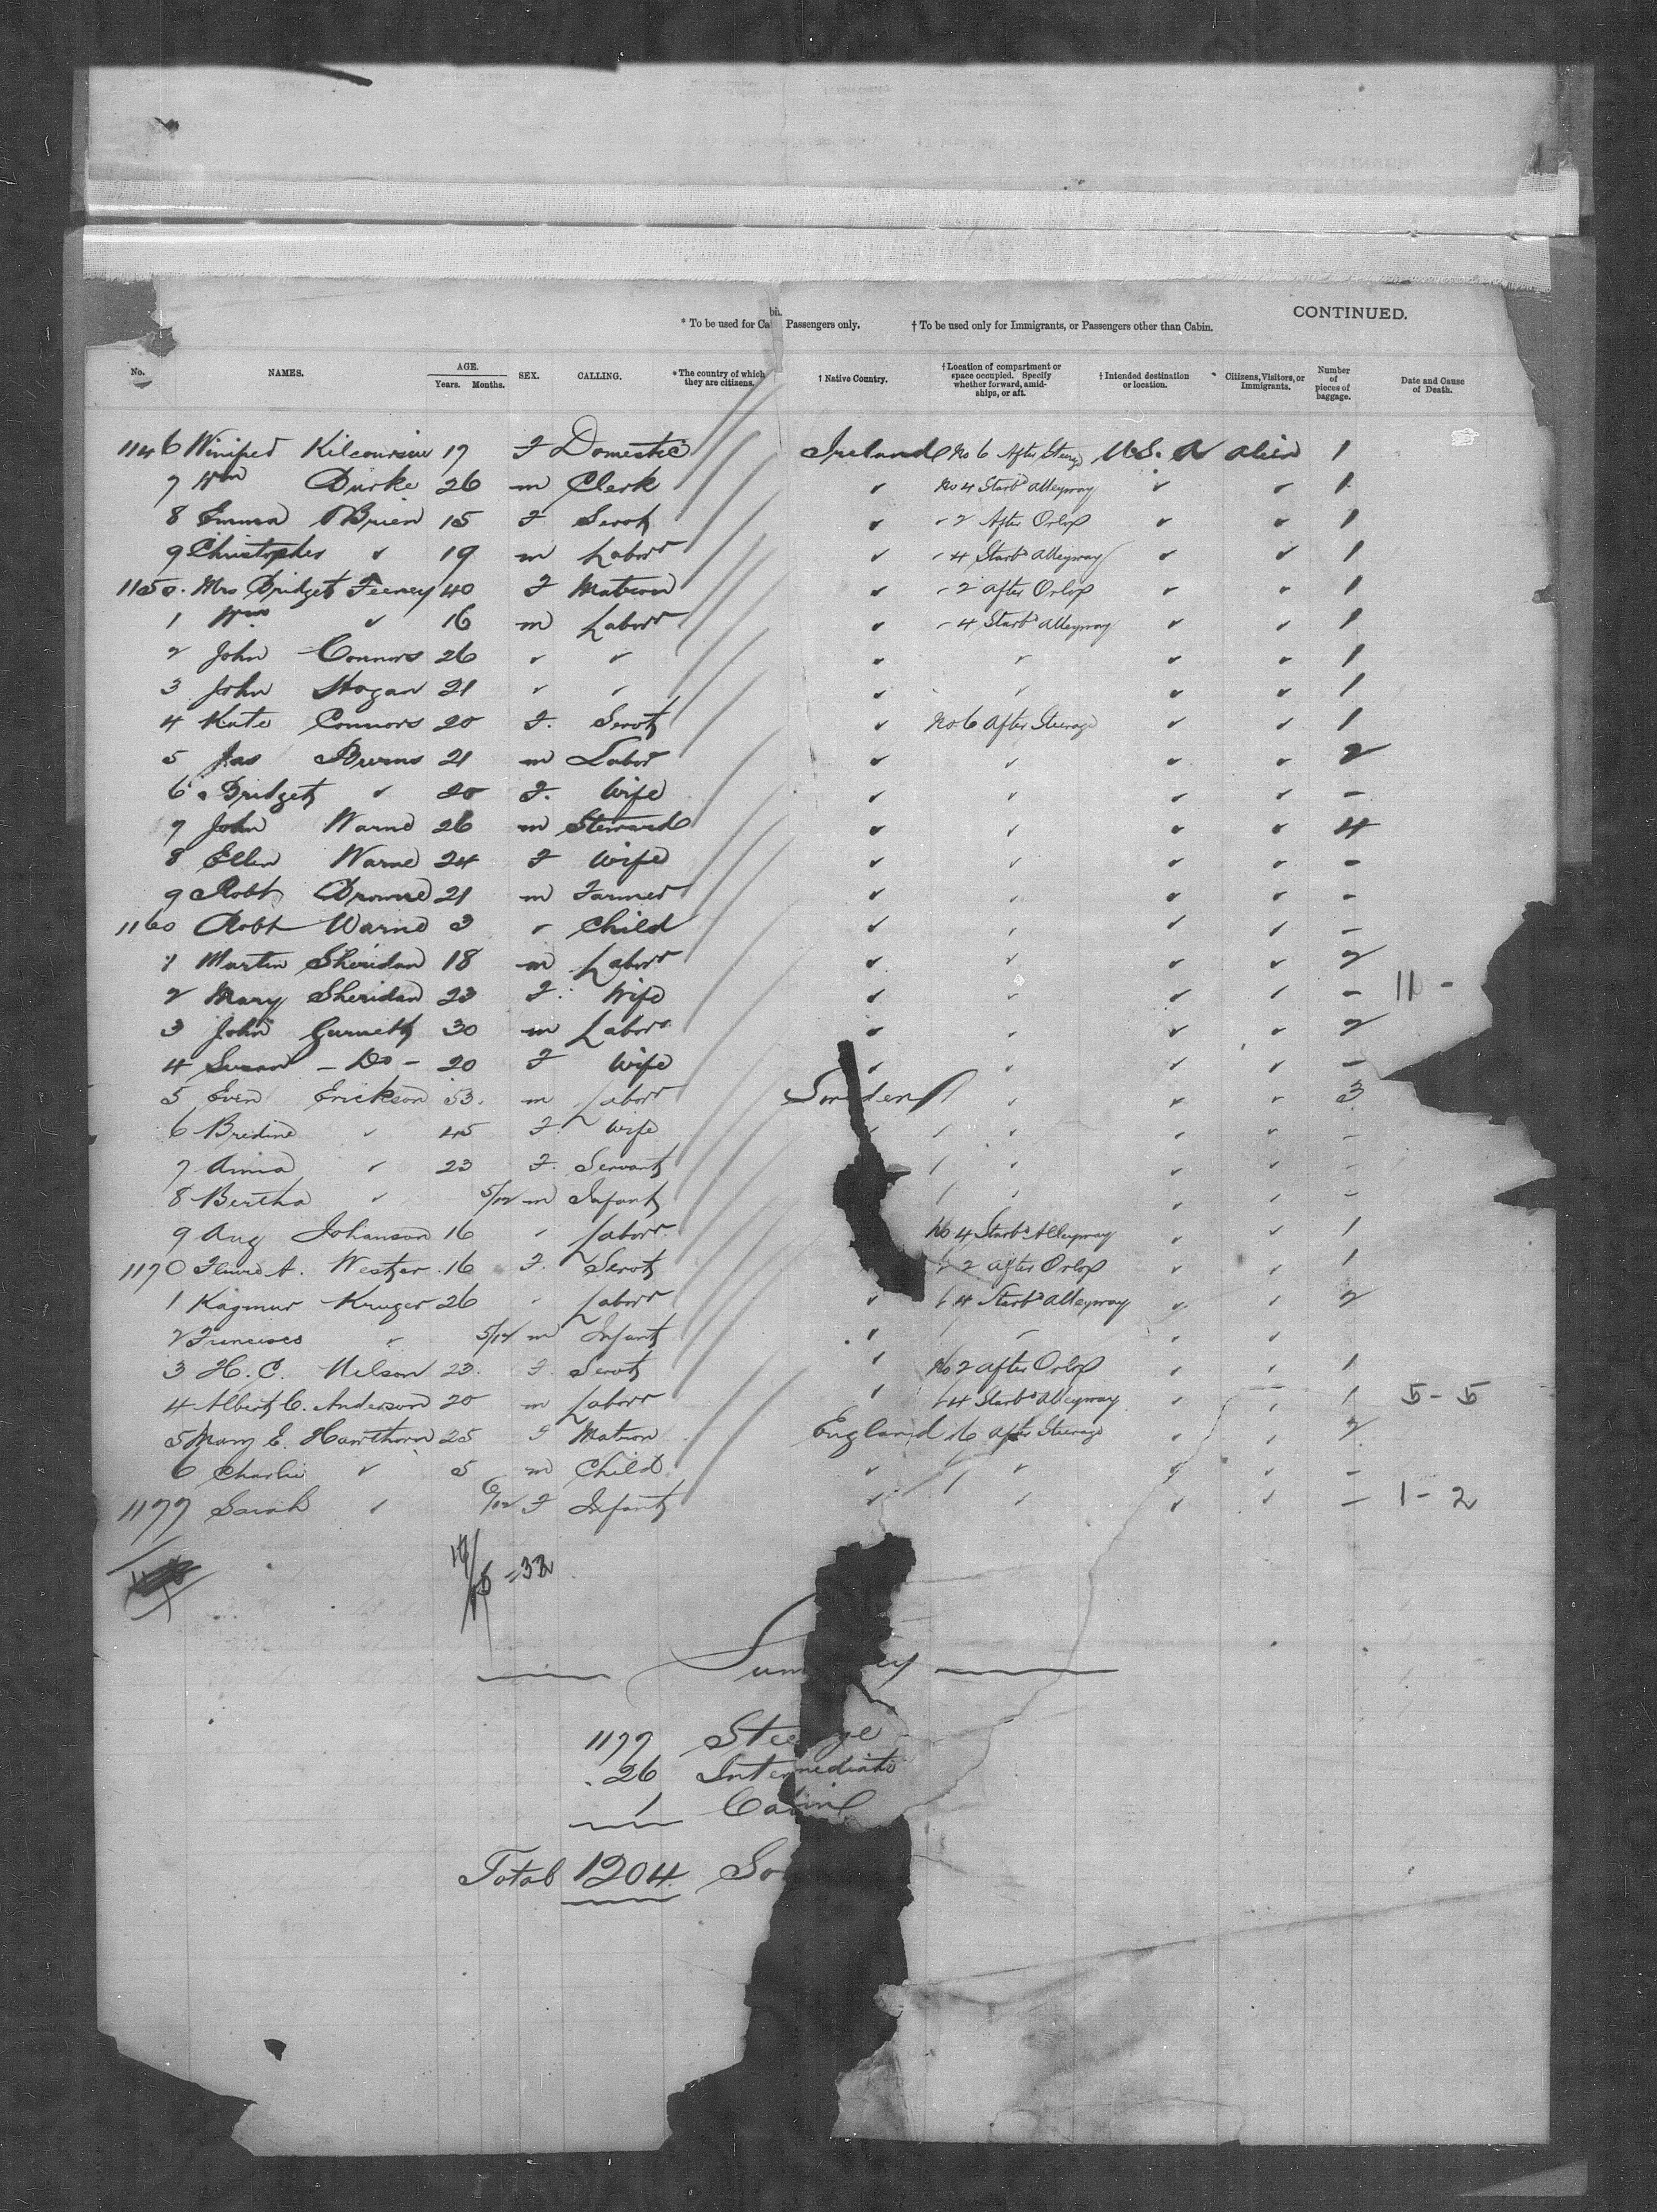 CONTINUED.
* To be used for Cabin Passengers only. † To be used only for Immigrants, or Passengers other than Cabin.
No. NAMES. AGE. Years. Months. SEX. CALLING. * The country of which they are citizens. † Native Country. † Location of compartment or space occupied. Specify whether forward, amidships, or aft. † Intended destination or location. Citizens, Visitors, or Immigrants. Number of pieces of baggage. Date and Cause of Death.
1146 Winifred 17 F Domestic Ireland No 6 After Steerge U.S. A alien 1
7 Wm Burke 26 m Clerk ✓ No 4 Starbd Alleyway ✓ ✓ 1
8 Emma OBrien 15 F Servt ✓ - 2 After Orlop ✓ ✓ 1
9 Christopher ✓ 19 m Labor ✓ - 4 Starbd Alleyway ✓ ✓ 1
1150. Mrs Bridget Feeney 40 F Matron ✓ - 2 after Orlop ✓ ✓ 1
1 Wm ✓ 16 m Labor ✓ - 4 Starbd Alleyway ✓ ✓ 1
2 John Connors 26 ✓ ✓ ✓ ✓ ✓ ✓ 1
3 John Hogan 21 ✓ ✓ ✓ ✓ ✓ ✓ 1
4 Kate Connors 20 F. Servt ✓ No 6 After Steerage ✓ ✓ 1
5 Jas Burns 21 m Labor ✓ ✓ ✓ ✓ 2
6 Bridget ✓ 20 F. Wife ✓ ✓ ✓ ✓ -
7 John Warne 26 m Steward ✓ ✓ ✓ ✓ 4
8 Ellen Warne 24 F Wife ✓ ✓ ✓ ✓ -
9 Robt Browne 21 m Farmer ✓ ✓ ✓ ✓ -
1160 Robt Warne 3 ✓ Child ✓ ✓ ✓ ✓ -
1 Martin Sheridan 18 m Labor ✓ ✓ ✓ ✓ 2
2 Mary Sheridan 23 F. Wife ✓ ✓ ✓ ✓ - 11 -
3 John 30 m Labor ✓ ✓ ✓ ✓ 2
4 Susan - Do - 20 F Wife ✓ ✓ ✓ ✓ -
5 Even Erickson 53. m Labor Sweden ✓ ✓ ✓ 3
6 Bredine ✓ 45 F. Wife ✓ ✓ ✓ ✓ -
7 Anna ✓ 23 F. Servant ✓ ✓ ✓ -
8 Bertha ✓ 5/12 m Infant ✓ ✓ ✓ -
9 Aug Johanson 16 ✓ Labor No 4 Starbd Alleyway ✓ ✓ 1
1170 A. 16 F. Servt 2 After Orlop ✓ ✓ 1
1 Kruger 26 ✓ Labor ✓ 4 Starbd Alleyway ✓ ✓ 2
2 ✓ 5/12 m Infant ✓ ✓ ✓ ✓
3 H. C. Nelson 23. F. Servt ✓ No 2 after Orlop ✓ ✓ 1
4 Albert C. Anderson 20 m Labor ✓ 4 Starbd Alleyway ✓ ✓ 1 5 - 5
5 Mary E. Hawthorn 25 F Matron England 6 After Steerage ✓ ✓ 2
6 Charlie ✓ 5 m Child ✓ ✓ ✓ ✓ -
1177 Sarah ✓ 6/12 F Infant ✓ ✓ ✓ ✓ - 1 - 2
= 32
Sum ry
1177 Steerage
26 Intermediate
1 Cabin
Total 1204 So